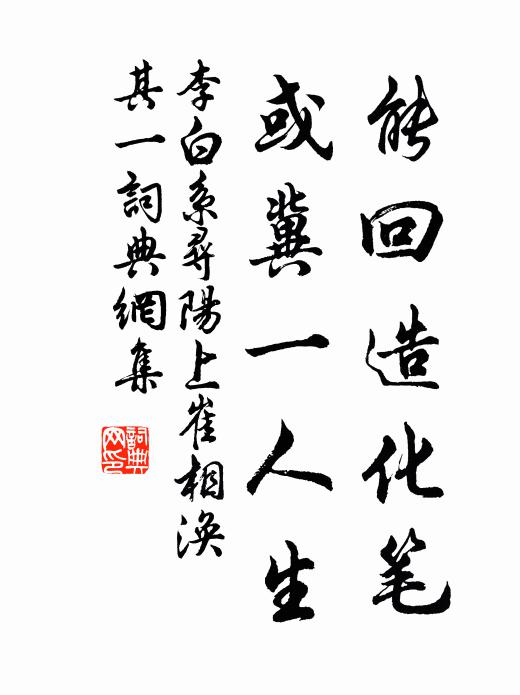 能回造化笔
或冀一人生
李白系尋陽上崔相渙
其一詞典網集
詞典
网印